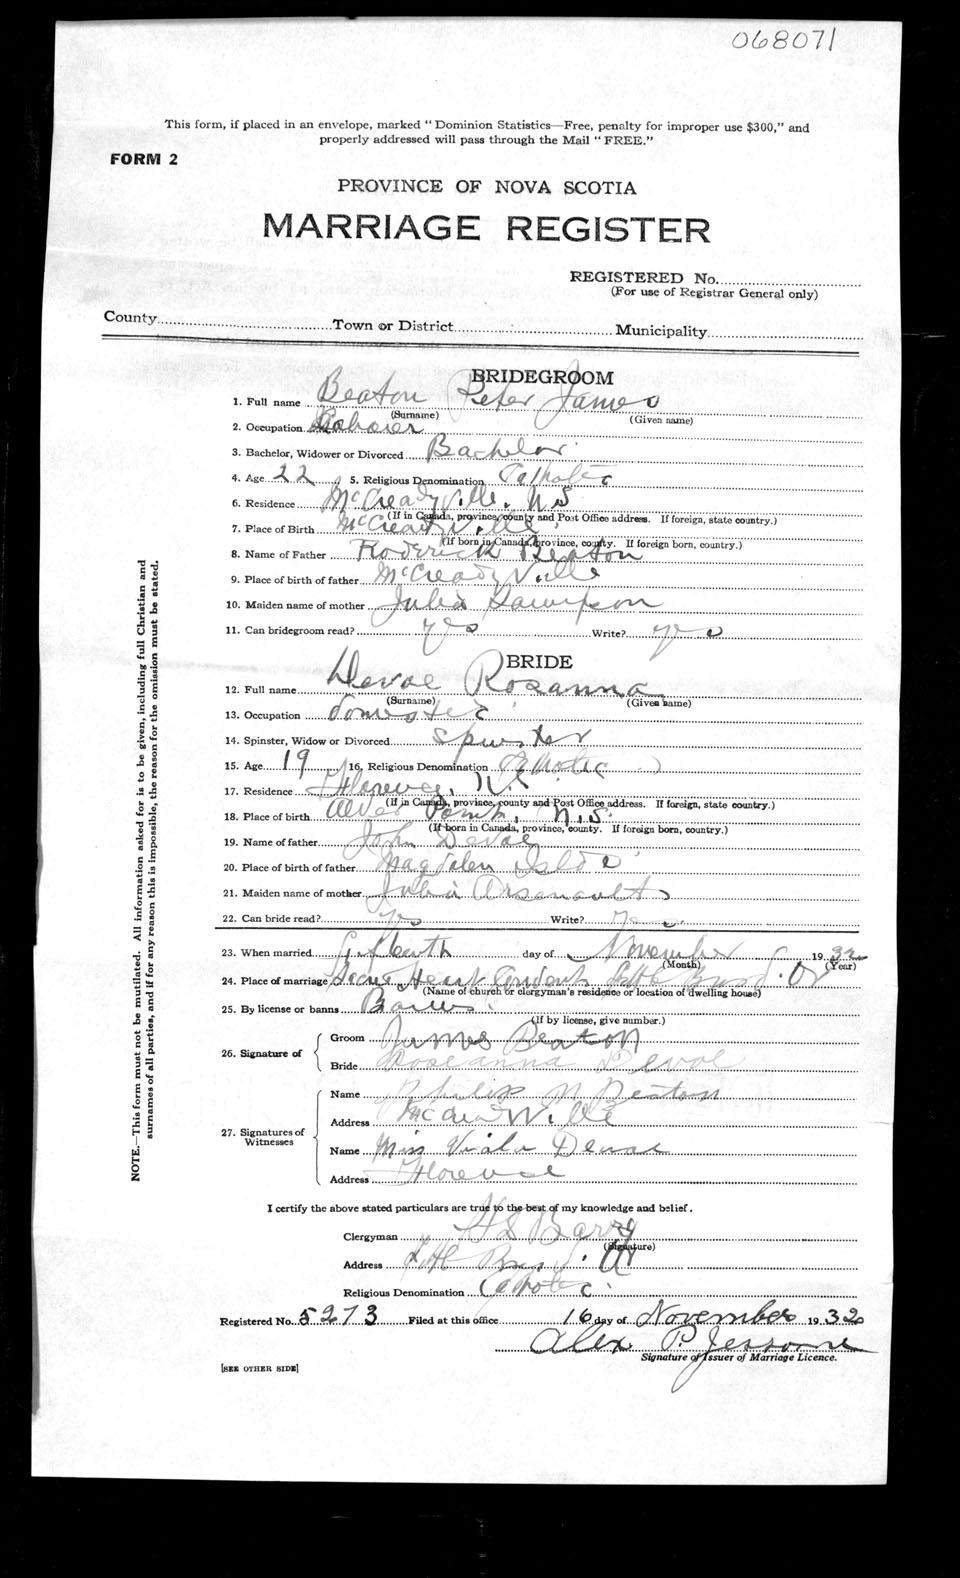 068071
This form, if placed in an envelope, marked " Dominion Statistics—Free, penalty for improper use $300," and
properly addressed will pass through the Mail " FREE."
FORM 2
PROVINCE OF NOVA SCOTIA
MARRIAGE REGISTER
REGISTERED No.
(For use of Registrar General only)
County Town or District Municipality
BRIDEGROOM
1. Full name Beaton Peter James
(Surname) (Given name)
2. Occupation Laborer
3. Bachelor, Widower or Divorced Bachelor
4. Age 22 5. Religious Denomination Catholic
6. Residence McCreadyville, N.S
(If in Canada, province, county and Post Office address. If foreign, state country.)
7. Place of Birth McCreadyville
(If born in Canada, province, county. If foreign born, country.)
8. Name of Father Roderick Beaton
9. Place of birth of father McCreadyVille
10. Maiden name of mother Julia
11. Can bridegroom read? yes Write? yes
BRIDE
12. Full name Devoe Rosanna
(Surname) (Given name)
13. Occupation domestic
14. Spinster, Widow or Divorced spinster
15. Age 19 16. Religious Denomination Catholic
17. Residence Florence, N.S.
(If in Canada, province, county and Post Office address. If foreign, state country.)
18. Place of birth Alder Point, N.S.
(If born in Canada, province, county. If foreign born, country.)
19. Name of father John Devoe
20. Place of birth of father Magdalen Islde
21. Maiden name of mother Julia Arsenault
22. Can bride read? Yes Write? Yes
23. When married day of November 1932
(Month) (Year)
24. Place of marriage Heart
(Name of church or clergyman's residence or location of dwelling house)
25. By license or banns Banns
(If by license, give number.)
26. Signature of
Groom James Beaton
Bride Roseanna Devoe
27. Signatures of Witnesses
Name Beaton
Address
Name Miss Viola Devoe
Address Florence
I certify the above stated particulars are true to the best of my knowledge and belief.
Clergyman Barry
(Signature)
Address
Religious Denomination Catholic
Registered No. 5273 Filed at this office 16 day of November 1932
Alex P. Jessome
Signature of Issuer of Marriage Licence.
[SEE OTHER SIDE]
NOTE.—This form must not be mutilated. All information asked for is to be given, including full Christian and
surnames of all parties, and if for any reason this is impossible, the reason for the omission must be stated.